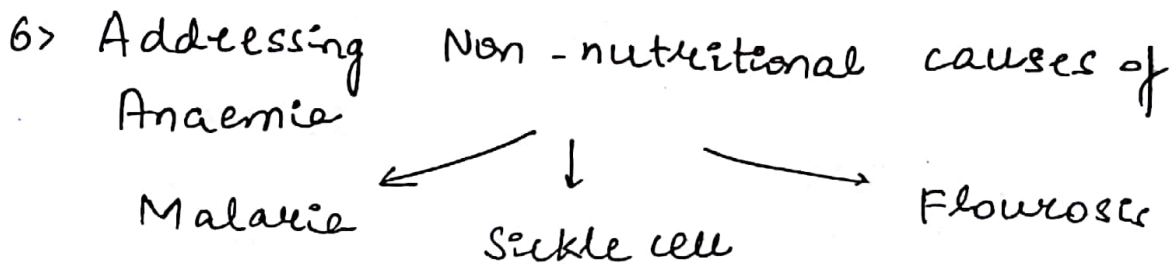 6> Addressing Non-nutritional causes of
Anaemia
Malaria
Sickle cell
Flourosis